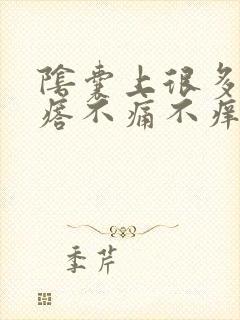 陰囊上很多
痞不痛不痒
季芹